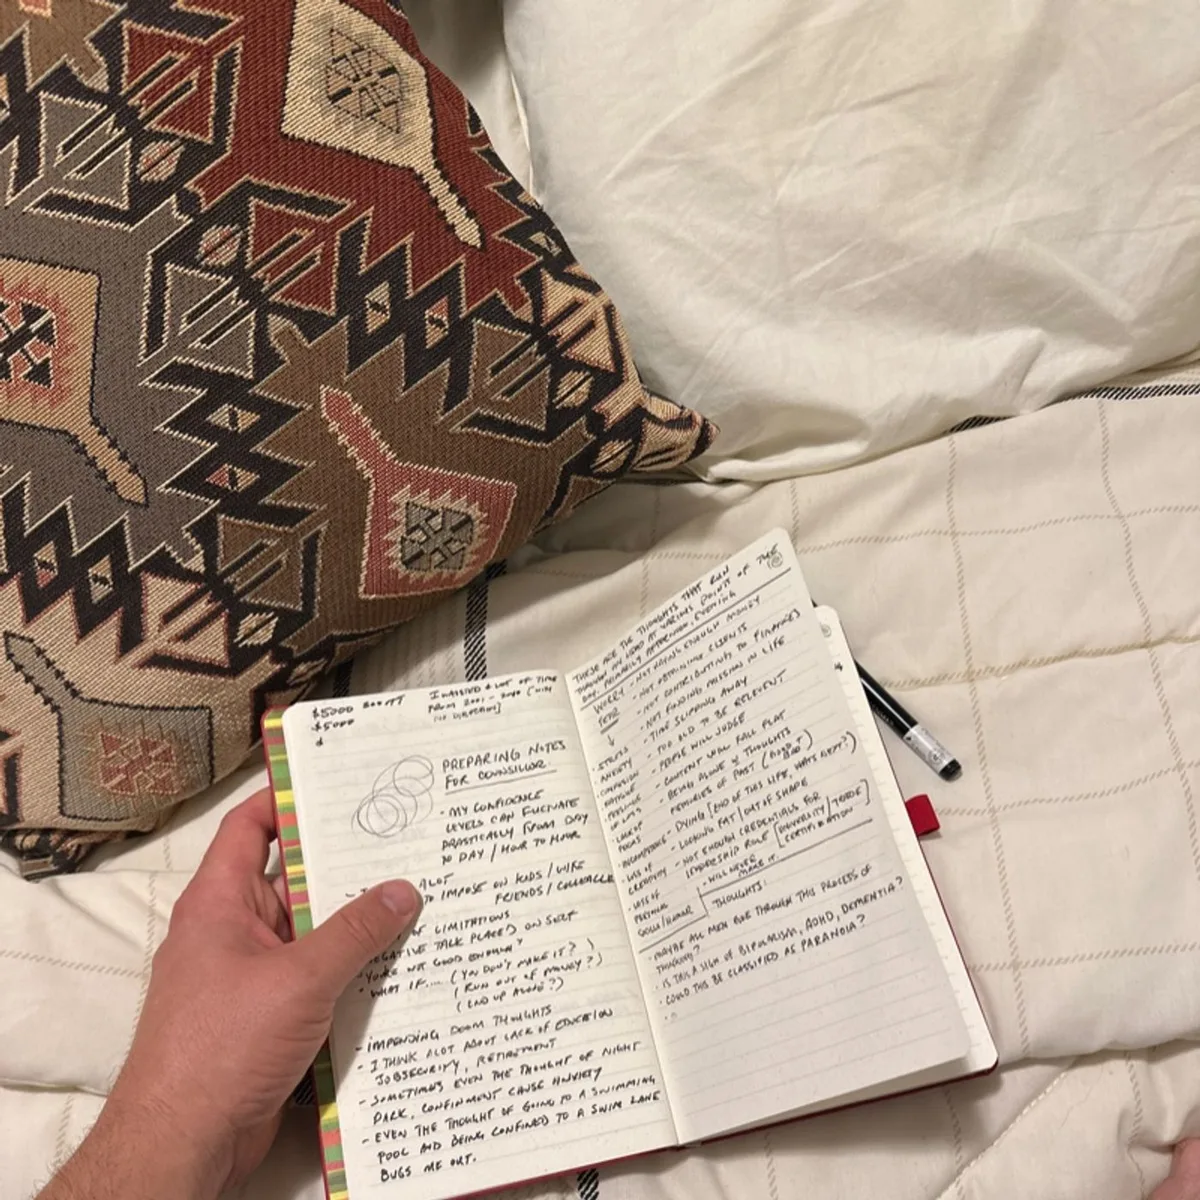 $5000
$5000
I WASTED A LOT OF TIME
FROM 2001 -
PREPARING NOTES
FOR COUNSILLOR.
- MY CONFIDENCE
LEVELS CAN FLUCUATE
DRASTICALLY FROM DAY
TO DAY / HOUR TO HOUR
ALOT
TO IMPOSE ON KIDS / WIFE
FRIENDS / COLLEAGUE
OF LIMITATIONS
NEGATIVE TALK PLACED ON SELF
YOU'RE NOT GOOD ENOUGH"
- WHAT IF... (YOU DON'T MAKE IT?)
(RUN OUT OF MONEY?)
(END UP ALONE?)
- IMPENDING DOOM THOUGHTS
- I THINK ALOT ABOUT LACK OF EDUCATION
JOB SECURITY, RETIREMENT
- SOMETIMES EVEN THE THOUGHT OF NIGHT
DARK, CONFINMENT CAUSE ANXIETY
- EVEN THE THOUGHT OF GOING TO A SWIMMING
POOL AND BEING CONFINED TO A SWIM LANE
BUGS ME OUT.
THESE ARE THE THOUGHTS THAT RUN
THROUGH MY HEAD AT VARIOUS POINTS OF THE
DAY. PRIMARILY AFTERNOON, EVENING
WORRY
FEAR
- NOT HAVING ENOUGH MONEY
- NOT OBTAINING CLIENTS
- NOT CONTRIBUTING TO FINANCES
- NOT FINDING MISSION IN LIFE
- TIME SLIPPING AWAY
- TOO OLD TO BE RELEVENT
- PEOPLE WILL JUDGE
- CONTENT WILL FALL FLAT
- BEING ALONE W THOUGHTS
- MEMORIES OF PAST (GOOD & BAD)
- DYING [END OF THIS LIFE, WHATS NEXT?]
- LOOKING FAT / OUT OF SHAPE
- NOT ENOUGH CREDENTIALS FOR
LEADERSHIP ROLE [UNIVERSITY / TRADE
CERTIFICATION]
- WILL NEVER
MAKE IT.
· STRESS
· ANXIETY
· CONFUSION
· FATIGUE
· FEELINGS
OF LOSS
· LACK OF
FOCUS
· INCOMPETENCE
· LOSS OF
CREATIVITY
· LOSS OF
PERSONAL
GOALS / HUMOR
THOUGHTS:
· MAYBE ALL MEN GOE THROUGH THIS PROCESS OF
THINKING?
· IS THIS A SIGN OF BIPOLARISM, ADHD, DEMENTIA?
· COULD THIS BE CLASSIFIED AS PARANOIA?